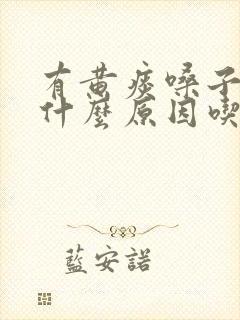 有黄痰嗓子
什麼原因喫
藍安諾